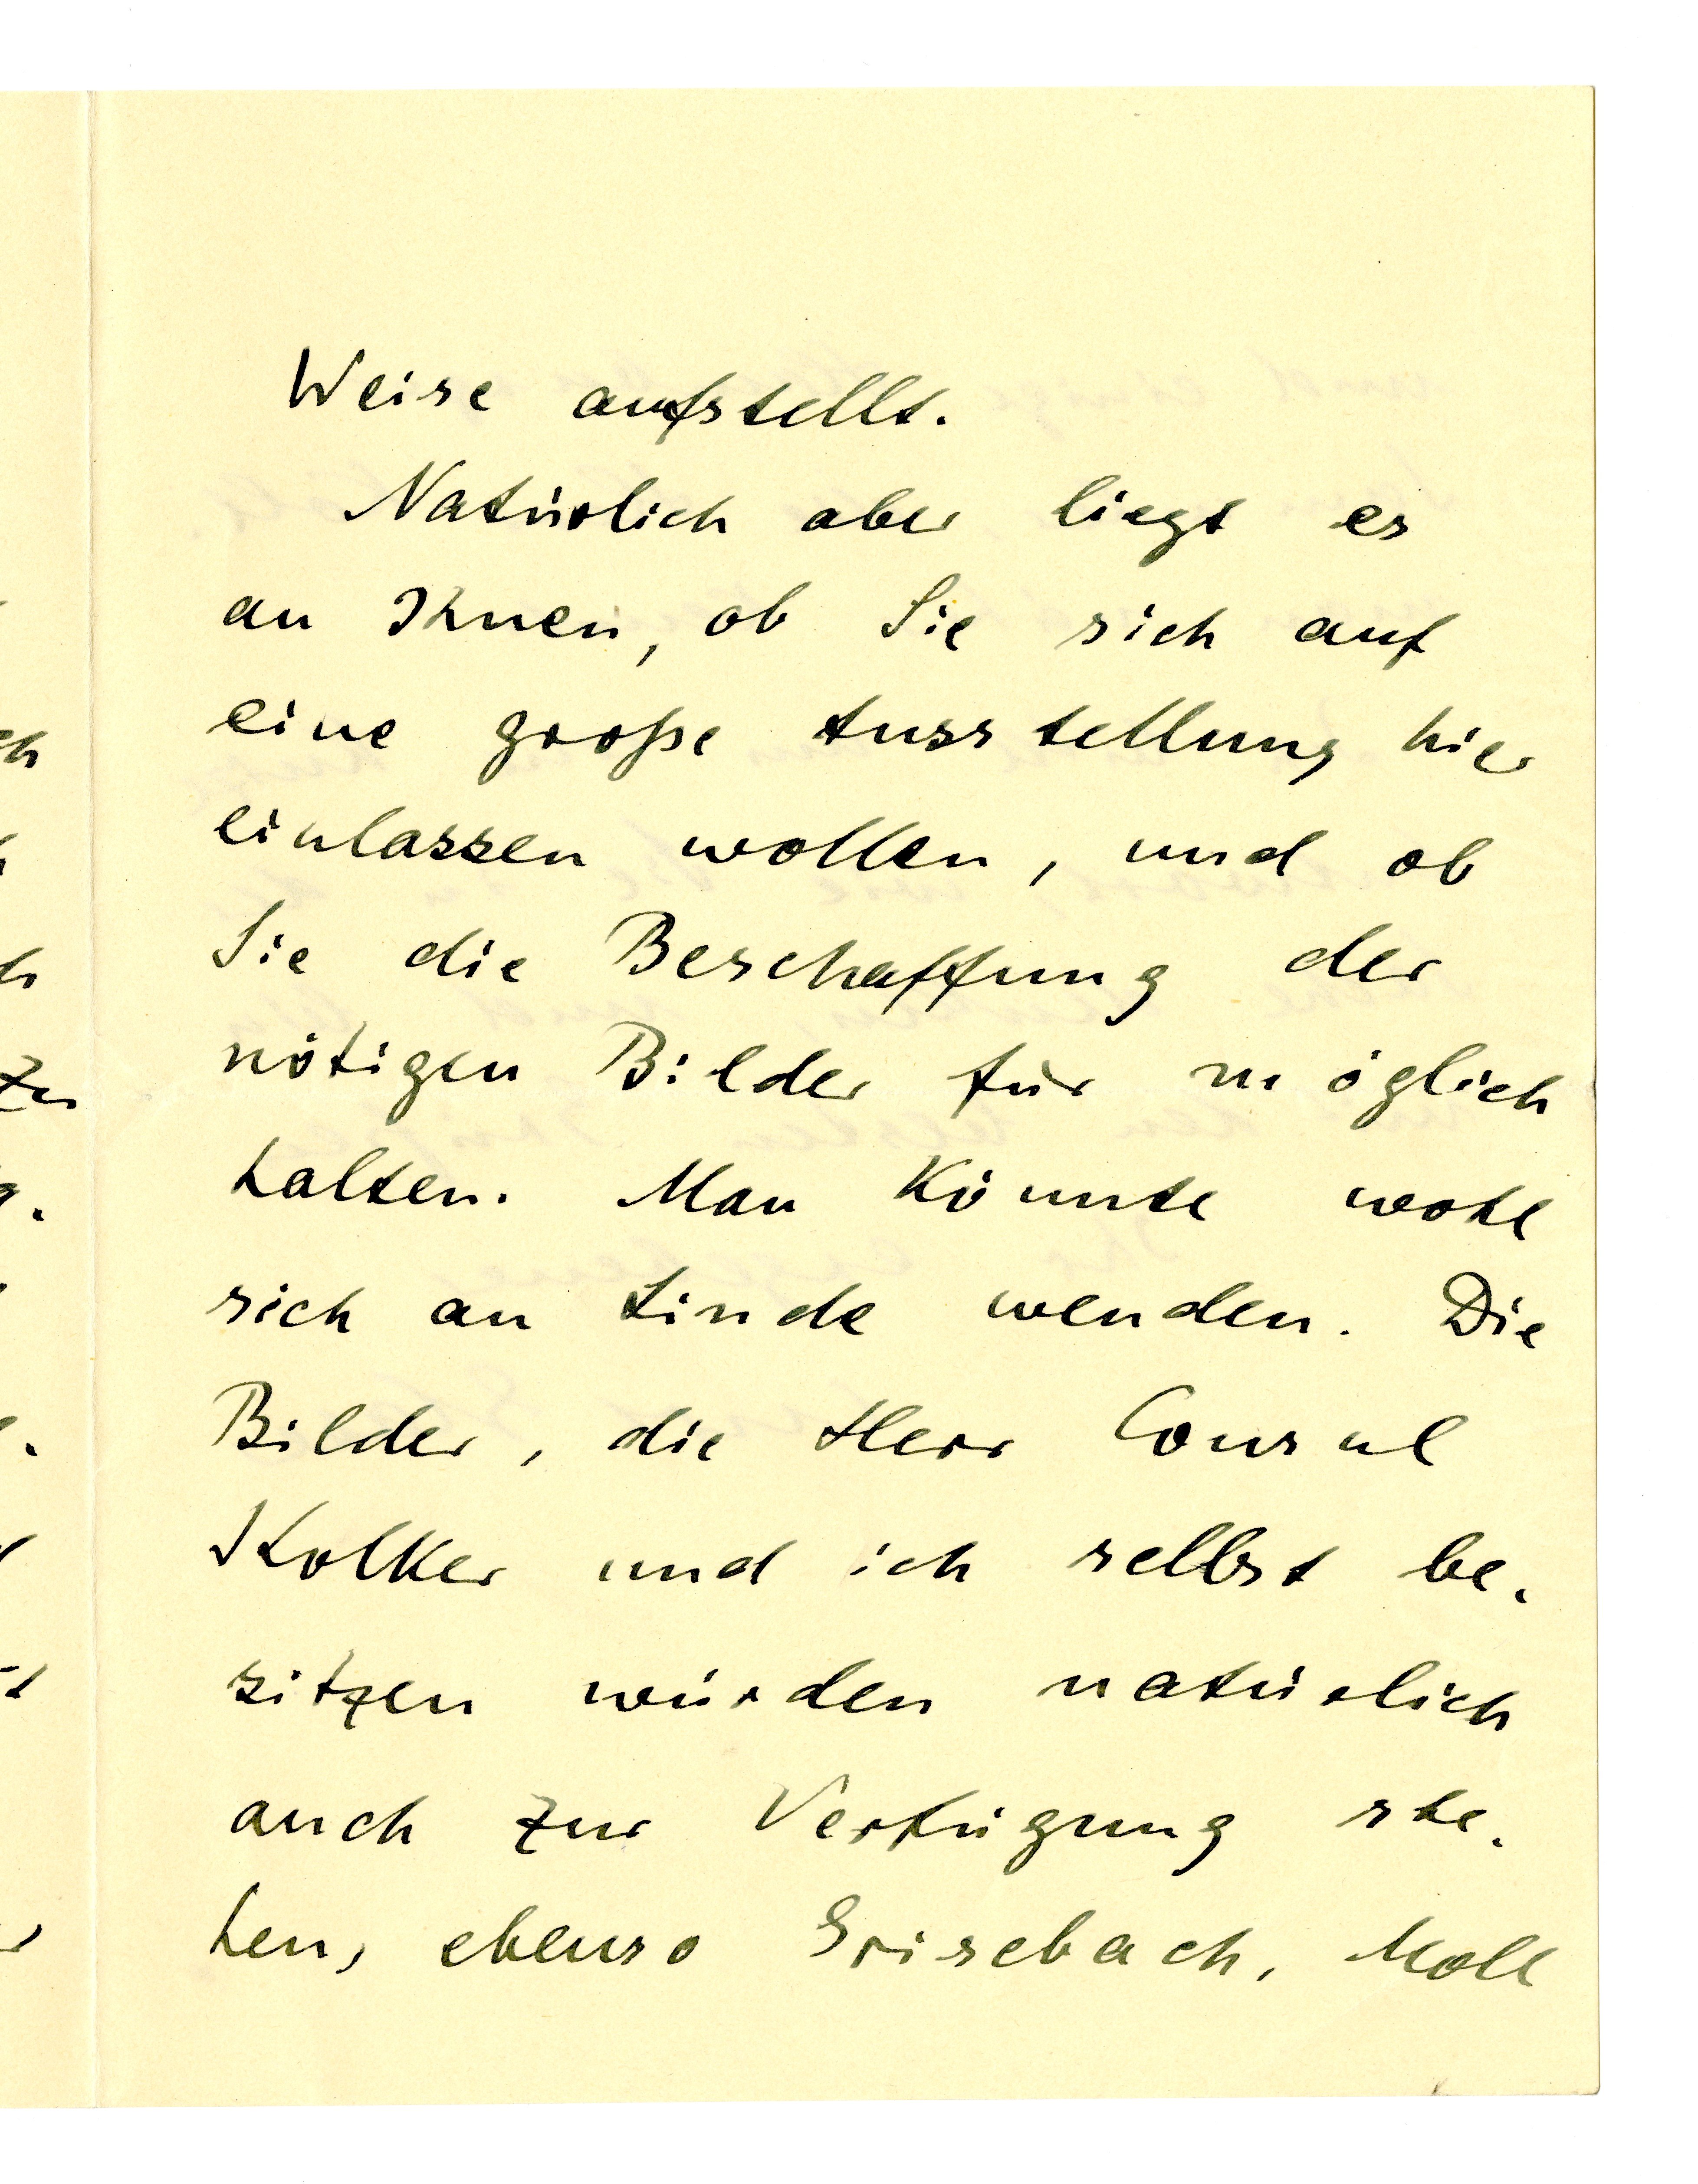 Weise aufstellt.
Natürlich aber liegt es
an Ihnen, ob Sie sich auf
eine große Ausstellung hier
einlassen wollen, und ob
Sie die Beschaffung der
nötigen Bilder für möglich
halten. Man könnte wohl
sich an Linde wenden. Die
Bilder, die Herr Consul
Kolker und ich selbst be-
sitzen würden natürlich
auch zur Verfügung ste-
hen, ebenso Grisebach, Moll